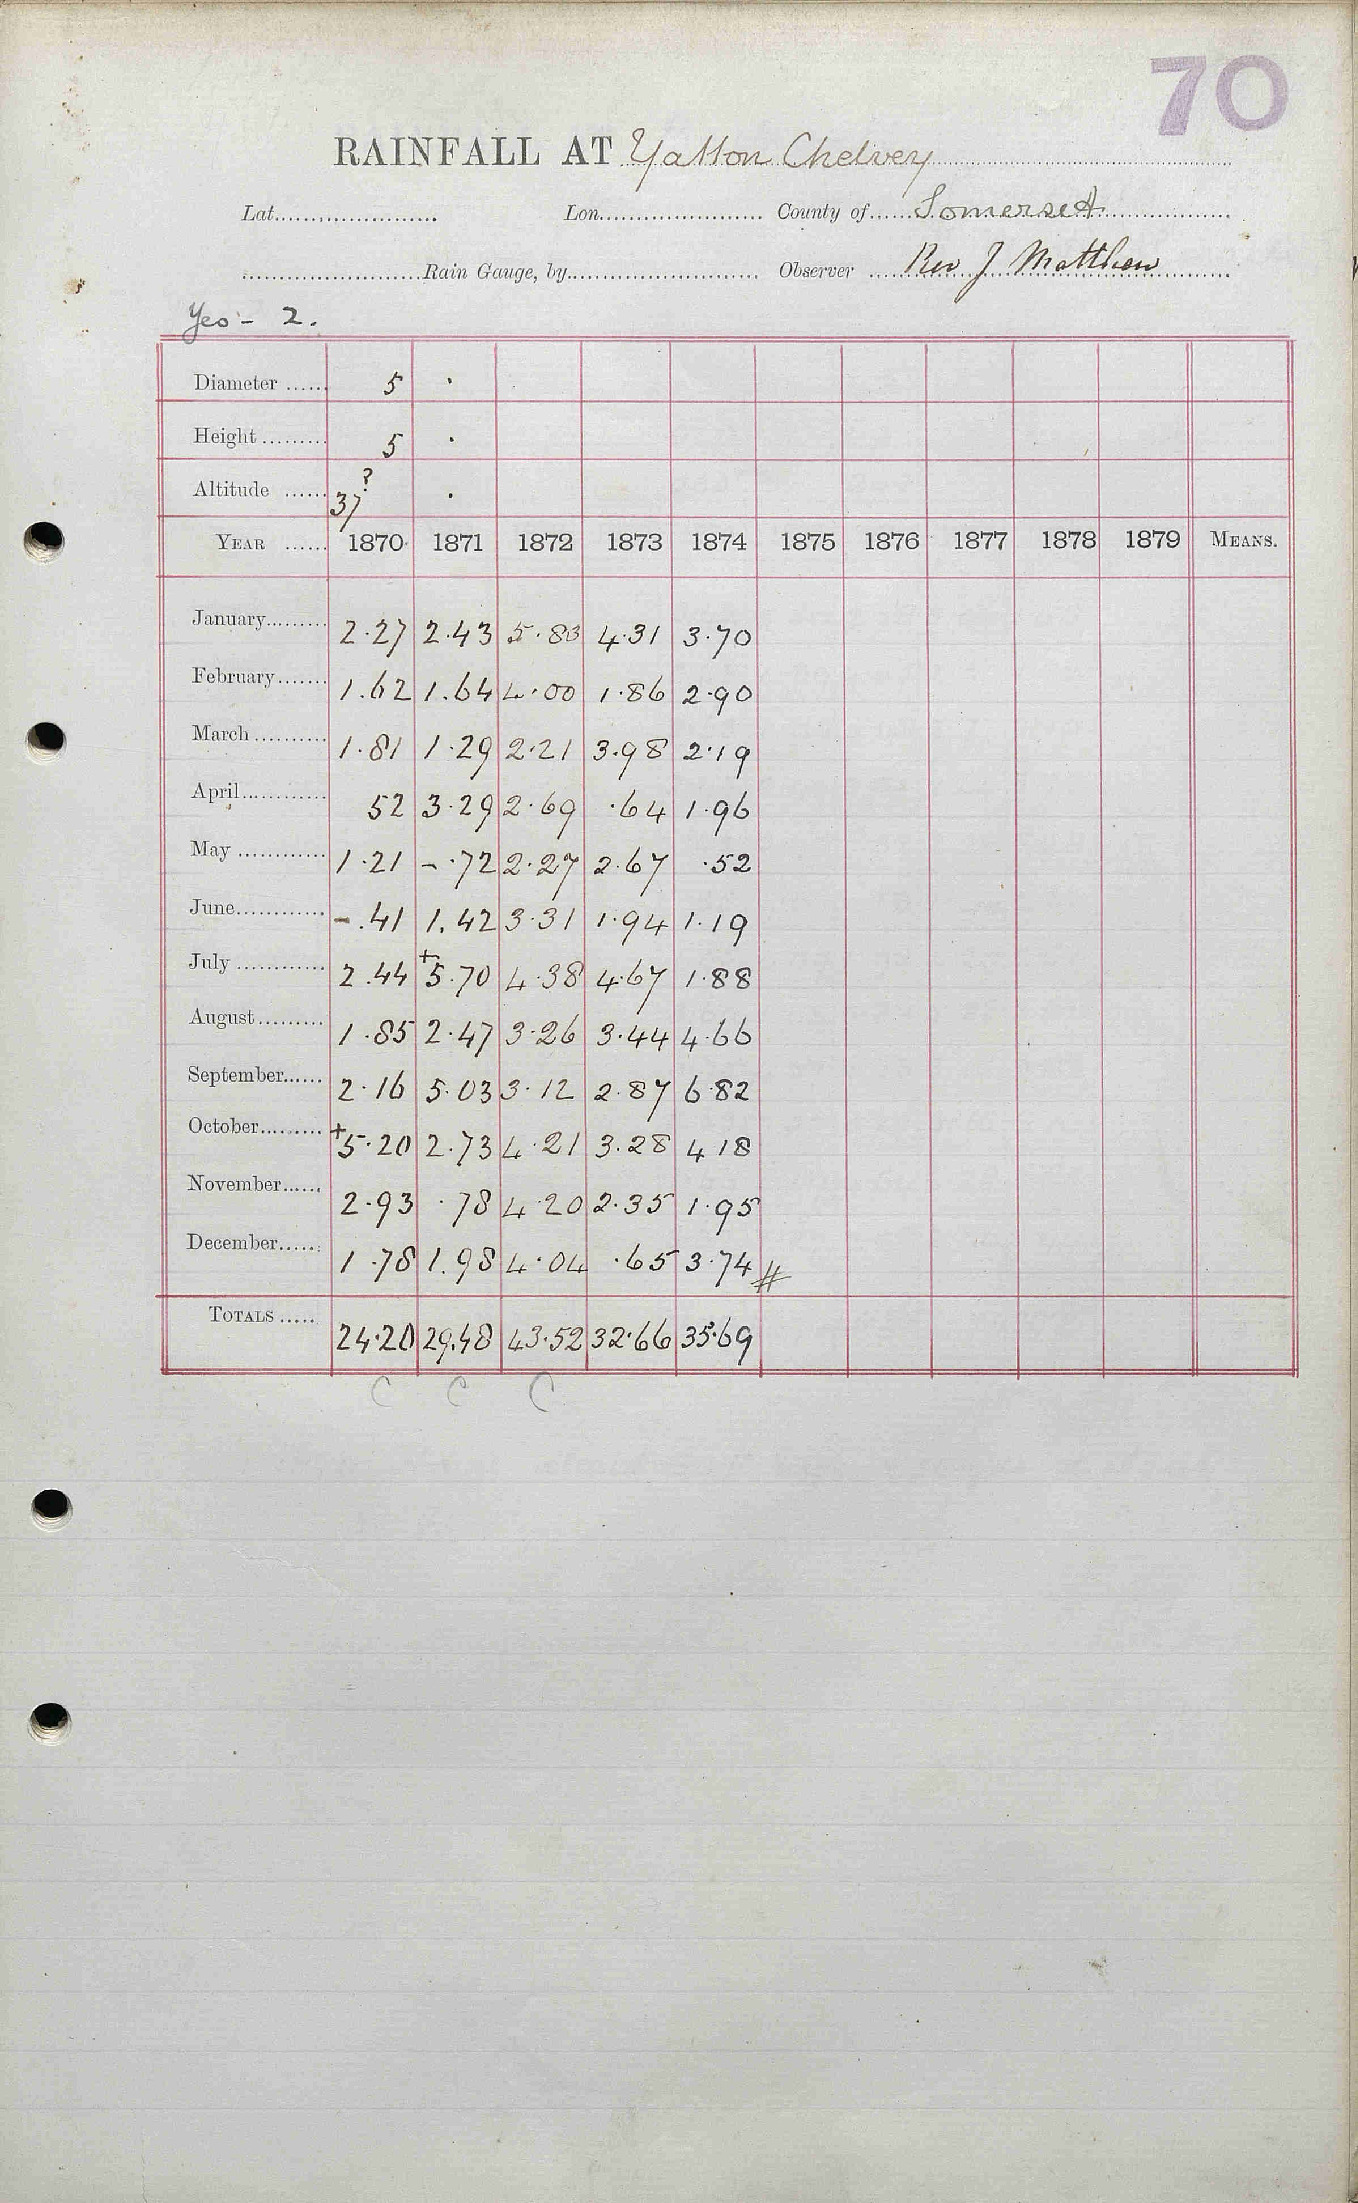 70
RAINFALL AT Yatton Chelvey
Lat. Lon. County of Somerset
Rain Gauge, by Observer Rev J Matthew
Yeo - 2.
Diameter 5 ·
Height 5 ·
Altitude 37? ·
YEAR 1870 1871 1872 1873 1874 1875 1876 1877 1878 1879 MEANS.
January 2.27 2.43 5.83 4.31 3.70
February 1.62 1.64 4.00 1.86 2.90
March 1.81 1.29 2.21 3.98 2.19
April 52 3.29 2.69 .64 1.96
May 1.21 - .72 2.27 2.67 .52
June - .41 1.42 3.31 1.94 1.19
July 2.44 +5.70 4.38 4.67 1.88
August 1.85 2.47 3.26 3.44 4.66
September 2.16 5.03 3.12 2.87 6.82
October +5.20 2.73 4.21 3.28 4 18
November 2.93 .78 4 20 2.35 1.95
December 1.78 1.98 4.04 .65 3.74 #
TOTALS 24.20 29.48 43.52 32.66 35.69
C C C